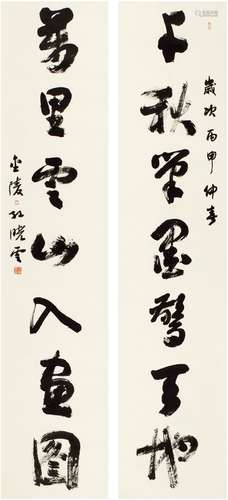 歲次丙申仲春
千秋筆墨驚天地
萬里雲山入畫圖
金陵孫曉雲